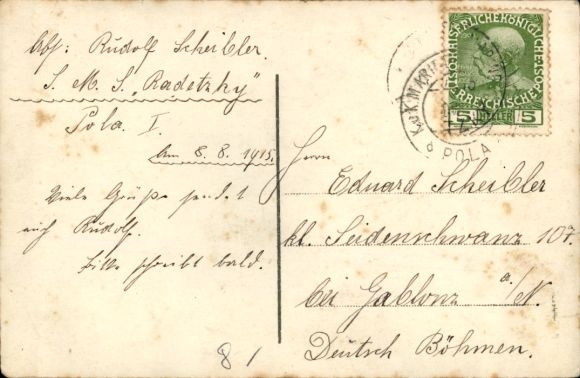 Abs: Rudolf Scheibler.
S. M. S. „Radetzky"
Pola I.
Am 8. 8. 1915.
Viele Grüße sendet
euch Rudolf.
Bitte schreibt bald.
Herrn
Eduard Scheibler
kl. Seidenschwanz 107.
bei Gablonz a./N.
Deutsch Böhmen.
81
KAISERLICHE KÖNIGLICHE
ÖSTERREICHISCHE POST
5 HELLER 5
K.u.K. MARINE
POLA